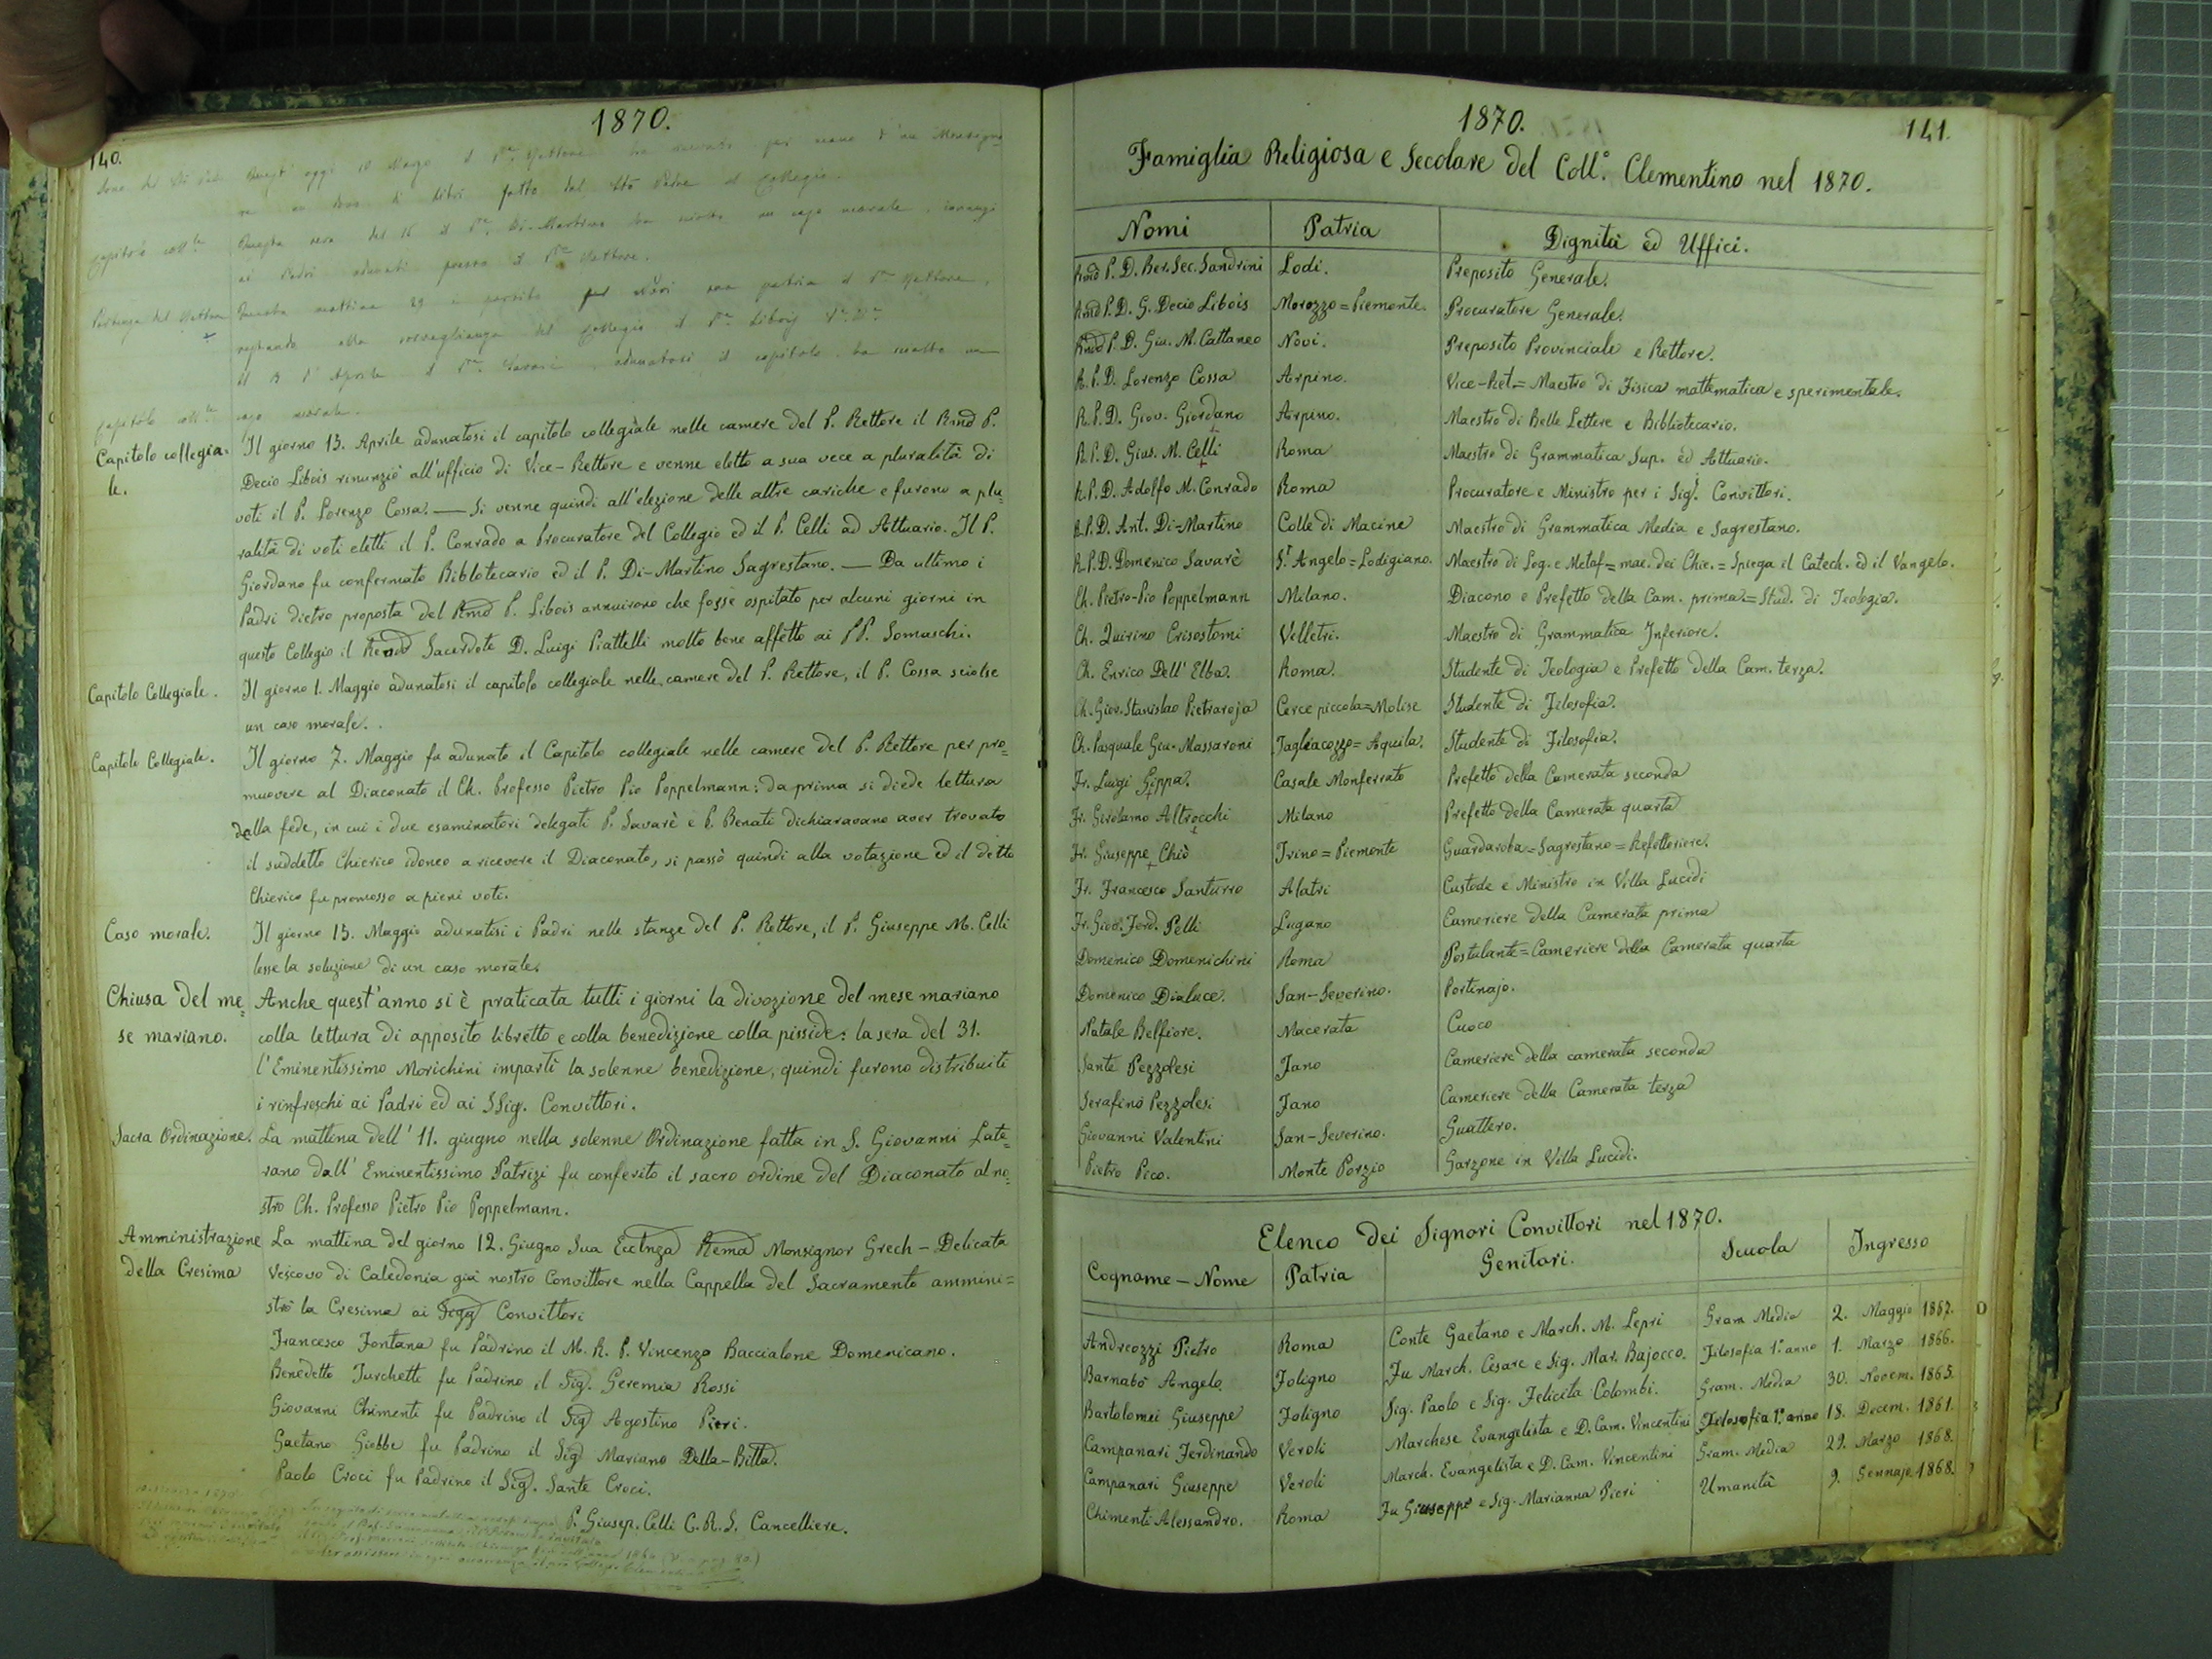 140.
1870.
Quest' oggi 10 Marzo il P. Rettore ha per mano d'un
un dono di libri fatto dal Sto Padre al Collegio.
Capitolo coll.le
Questa sera del 16 il P. Di-Martino ha sciolto un caso morale, innanzi
ai Padri adunati presso il P. Rettore.
Partenza del Rettore
Questa mattina 29 è partito per Novi sua patria il P. Rettore,
restando alla sorveglianza del Collegio il P. Libois
Il 3 d' Aprile il P. Savarè, adunatosi il capitolo, ha sciolto un
Capitolo coll.le
caso morale.
Capitolo collegia-
le.
Il giorno 13. Aprile adunatosi il capitolo collegiale nelle camere del P. Rettore il Rmo P.
Decio Libois rinunziò all'ufficio di Vice-Rettore e venne eletto a sua vece a pluralità di
voti il P. Lorenzo Cossa. — Si venne quindi all'elezione delle altre cariche e furono a plu=
ralità di voti eletti il P. Conrado a Procuratore del Collegio ed il P. Celli ad Attuario. Il P.
Giordano fu confermato Bibliotecario ed il P. Di-Martino Sagrestano. — Da ultimo i
Padri dietro proposta del Rmo P. Libois annuirono che fosse ospitato per alcuni giorni in
questo Collegio il Revdo Sacerdote D. Luigi Piattelli molto bene affetto ai PP. Somaschi.
Capitolo Collegiale.
Il giorno 1. Maggio adunatosi il capitolo collegiale nelle camere del P. Rettore, il P. Cossa sciolse
un caso morale.
Capitolo Collegiale.
Il giorno 7. Maggio fu adunato il Capitolo collegiale nelle camere del P. Rettore per pro=
muovere al Diaconato il Ch. Professo Pietro Pio Poppelmann: da prima si diede lettura
della fede, in cui i due esaminatori delegati P. Savarè e P. Benati dichiaravano aver trovato
il suddetto Chierico idoneo a ricevere il Diaconato, si passò quindi alla votazione ed il detto
Chierico fu promosso a pieni voti.
Caso morale.
Il giorno 15. Maggio adunatisi i Padri nelle stanze del P. Rettore, il P. Giuseppe M. Celli
lesse la soluzione di un caso morale.
Chiusa del me=
se mariano.
Anche quest'anno si è praticata tutti i giorni la divozione del mese mariano
colla lettura di apposito libretto e colla benedizione colla pisside: la sera del 31.
l'Eminentissimo Morichini impartì la solenne benedizione, quindi furono distribuiti
i rinfreschi ai Padri ed ai SSig. Convittori.
Sacra Ordinazione.
La mattina dell' 11. giugno nella solenne Ordinazione fatta in S. Giovanni Late=
rano dall' Eminentissimo Patrizi fu conferito il sacro ordine del Diaconato al no=
stro Ch. Professo Pietro Pio Poppelmann.
Amministrazione
della Cresima
La mattina del giorno 12. Giugno Sua Ecclnza Rema Monsignor Grech - Delicata
Vescovo di Caledonia già nostro Convittore nella Cappella del Sacramento ammini=
strò la Cresima ai Sigg Convittori
Francesco Fontana fu Padrino il M. R. P. Vincenzo Baccialone Domenicano.
Benedetto Turchetti fu Padrino il Sig. Geremia Rossi
Giovanni Chimenti fu Padrino il Sig Agostino Pieri.
Gaetano Giobbe fu Padrino il Sig Mariano Della-Bitta.
Paolo Croci fu Padrino il Sig. Sante Croci.
P. Giusep. Celli C. R. S. Cancelliere.
1870.
141.
Famiglia Religiosa e Secolare del Coll.° Clementino nel 1870.
Nomi Patria Dignità ed Uffici.
Rmo P. D. Ber. Sec. Sandrini Lodi. Preposito Generale.
Rmo P. D. G. Decio Libois Morozzo = Piemonte. Procuratore Generale.
Rmo P. D. Giu. M. Cattaneo Novi. Preposito Provinciale e Rettore.
R. P. D. Lorenzo Cossa Arpino. Vice-Ret. = Maestro di Fisica mattematica e sperimentale.
R. P. D. Giov. Giordano Arpino. Maestro di Belle Lettere e Bibliotecario.
R. P. D. Gius. M. Celli Roma Maestro di Grammatica Sup. ed Attuario.
R. P. D. Adolfo M. Conrado Roma Procuratore e Ministro per i Sig.ri Convittori.
R. P. D. Ant. Di-Martino Colle di Macine Maestro di Grammatica Media e Sagrestano.
R. P. D. Domenico Savarè S.t Angelo = Lodigiano. Maestro di Log. e Metaf = mae. dei Chie. = Spiega il Catech. ed il Vangelo.
Ch. Pietro-Pio Poppelmann Milano. Diacono e Prefetto della Cam. prima = Stud. di Teologia.
Ch. Quirino Crisostomi Velletri. Maestro di Grammatica Inferiore.
Ch. Enrico Dell' Elba. Roma. Studente di Teologia e Prefetto della Cam. terza.
Ch. Giov. Stanislao Pietraroja Cerce piccola = Molise Studente di Filosofia.
Ch. Pasquale Giu. Massaroni Tagliacozzo = Aquila. Studente di Filosofia.
Fr. Luigi Gippa. Casale Monferrato Prefetto della Camerata seconda
Fr. Girolamo Altrocchi Milano Prefetto della Camerata quarta
Fr. Giuseppe Chiò Trino = Piemonte Guardaroba = Sagrestano = Refettoriere.
Fr. Francesco Santurro Alatri Custode e Ministro in Villa Lucidi
Fr. Giov. Ferd. Pelli Lugano Cameriere della Camerata prima
Domenico Domenichini Roma Postulante = Cameriere della Camerata quarta
Domenico Dialuce. San-Severino. Portinajo.
Natale Belfiore. Macerata Cuoco
Sante Pezzolesi Fano Cameriere della camerata seconda
Serafino Pezzolesi Fano Cameriere della Camerata terza
Giovanni Valentini San-Severino. Guattero.
Pietro Pico. Monte Porzio Garzone in Villa Lucidi.
Elenco dei Signori Convittori nel 1870.
Cognome - Nome Patria Genitori. Scuola Ingresso
Andreozzi Pietro Roma Conte Gaetano e March. M. Lepri Gram Media 2. Maggio 1867.
Barnabò Angelo. Foligno Fu March. Cesare e Sig. Mar. Bajocco. Filosofia 1.° anno 1. Marzo 1866.
Bartolomei Giuseppe Foligno Sig. Paolo e Sig. Felicita Colombi. Gram. Media 30. Novem. 1865.
Campanari Ferdinando Veroli Marchese Evangelista e D. Cam. Vincentini Filosofia 1.° anno 18. Decem. 1861.
Campanari Giuseppe Veroli March. Evangelista e D. Cam. Vincentini Gram. Media 29. Marzo 1868.
Chimenti Alessandro. Roma Fu Giuseppe e Sig. Marianna Pieri Umanità 9. Gennajo 1868.